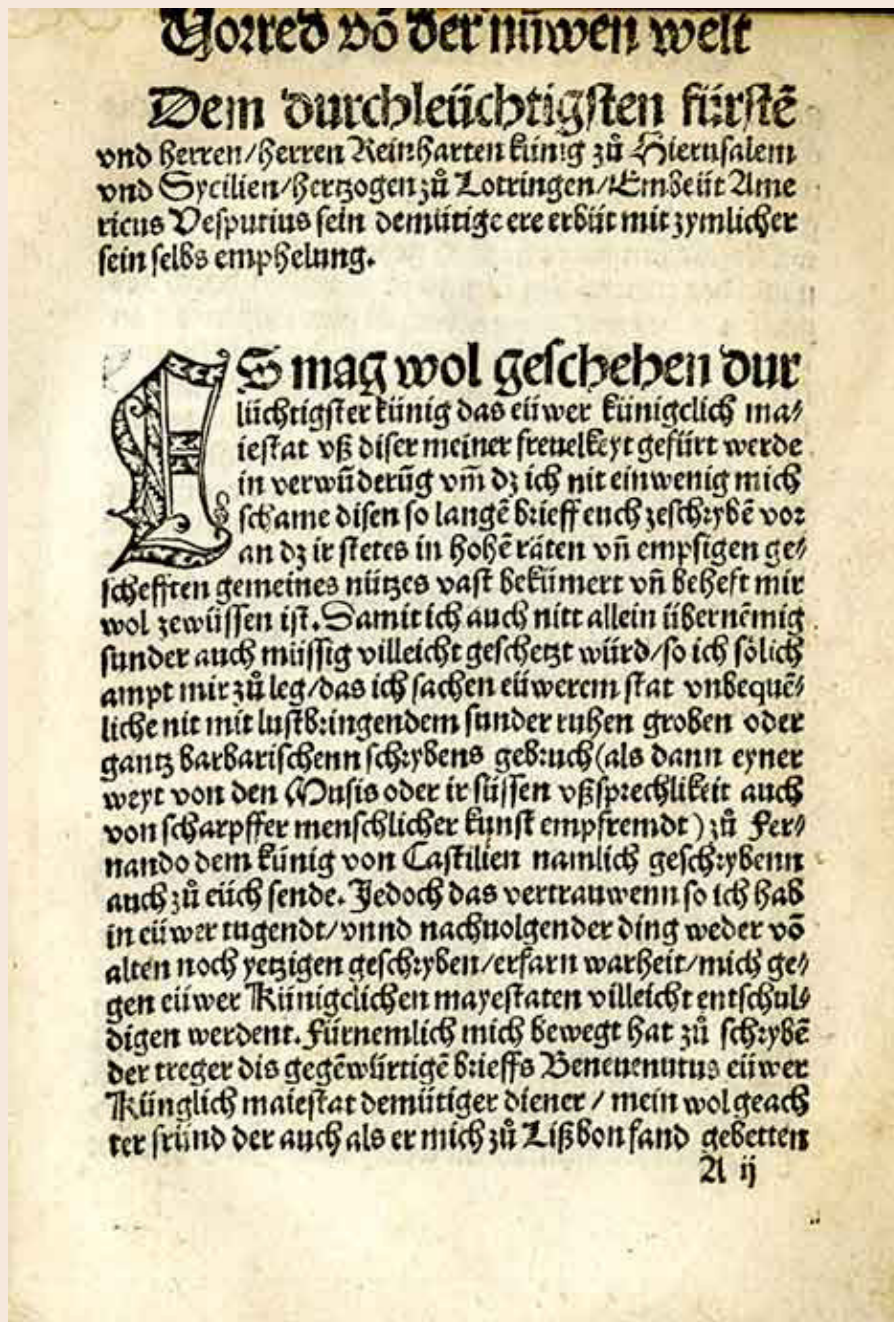 Vorred võ der nüwen welt
Dem durchleüchtigsten fürstẽ
vnd herren/herren Reinharten künig zů Hierusalem
vnd Sycilien/hertzogen zů Lotringen/Embeüt Ame
ricus Vesputius sein demütige ere erbüt mit zymlicher
sein selbs emphelung.
ES mag wol geschehen dur
lüchtigster künig das eüwer künigclich ma⸗
iestat vß diser meiner freuelkeyt gefürt werde
in verwũderũg vm̃ dz ich nit einwenig mich
schame disen so langẽ brieff euch zeschrybẽ vor
an dz ir stetes in hohẽ räten vñ empsigen ge⸗
schefften gemeines nützes vast bekümert vñ beheft mir
wol zewüssen ist. Damit ich auch nitt allein übernẽmig
sunder auch müssig villeicht geschetzt würd/so ich sölich
ampt mir zů leg/das ich sachen eüwerem stat vnbequẽ⸗
liche nit mit lustbringendem sunder ruhen groben oder
gantz barbarischenn schrybens gebruch(als dann eyner
weyt von den Musis oder ir süssen vßsprechlikeit auch
von scharpffer menschlicher kunst empfremdt) zů Fer⸗
nando dem künig von Castilien namlich geschrybenn
auch zů eüch sende. Jedoch das vertrauwenn so ich hab
in eüwer tugendt/vnnd nachuolgender ding weder võ
alten noch yetzigen geschryben/erfarn warheit/mich ge⸗
gen eüwer Künigclichen mayestaten villeicht entschul⸗
digen werdent. Fürnemlich mich bewegt hat zů schrybẽ
der treger dis gegẽwürtigẽ brieffs Beneuenutus eüwer
Künglich maiestat demütiger diener / mein wol geach
ter fründ der auch als er mich zů Lißbon fand gebetten
A ij